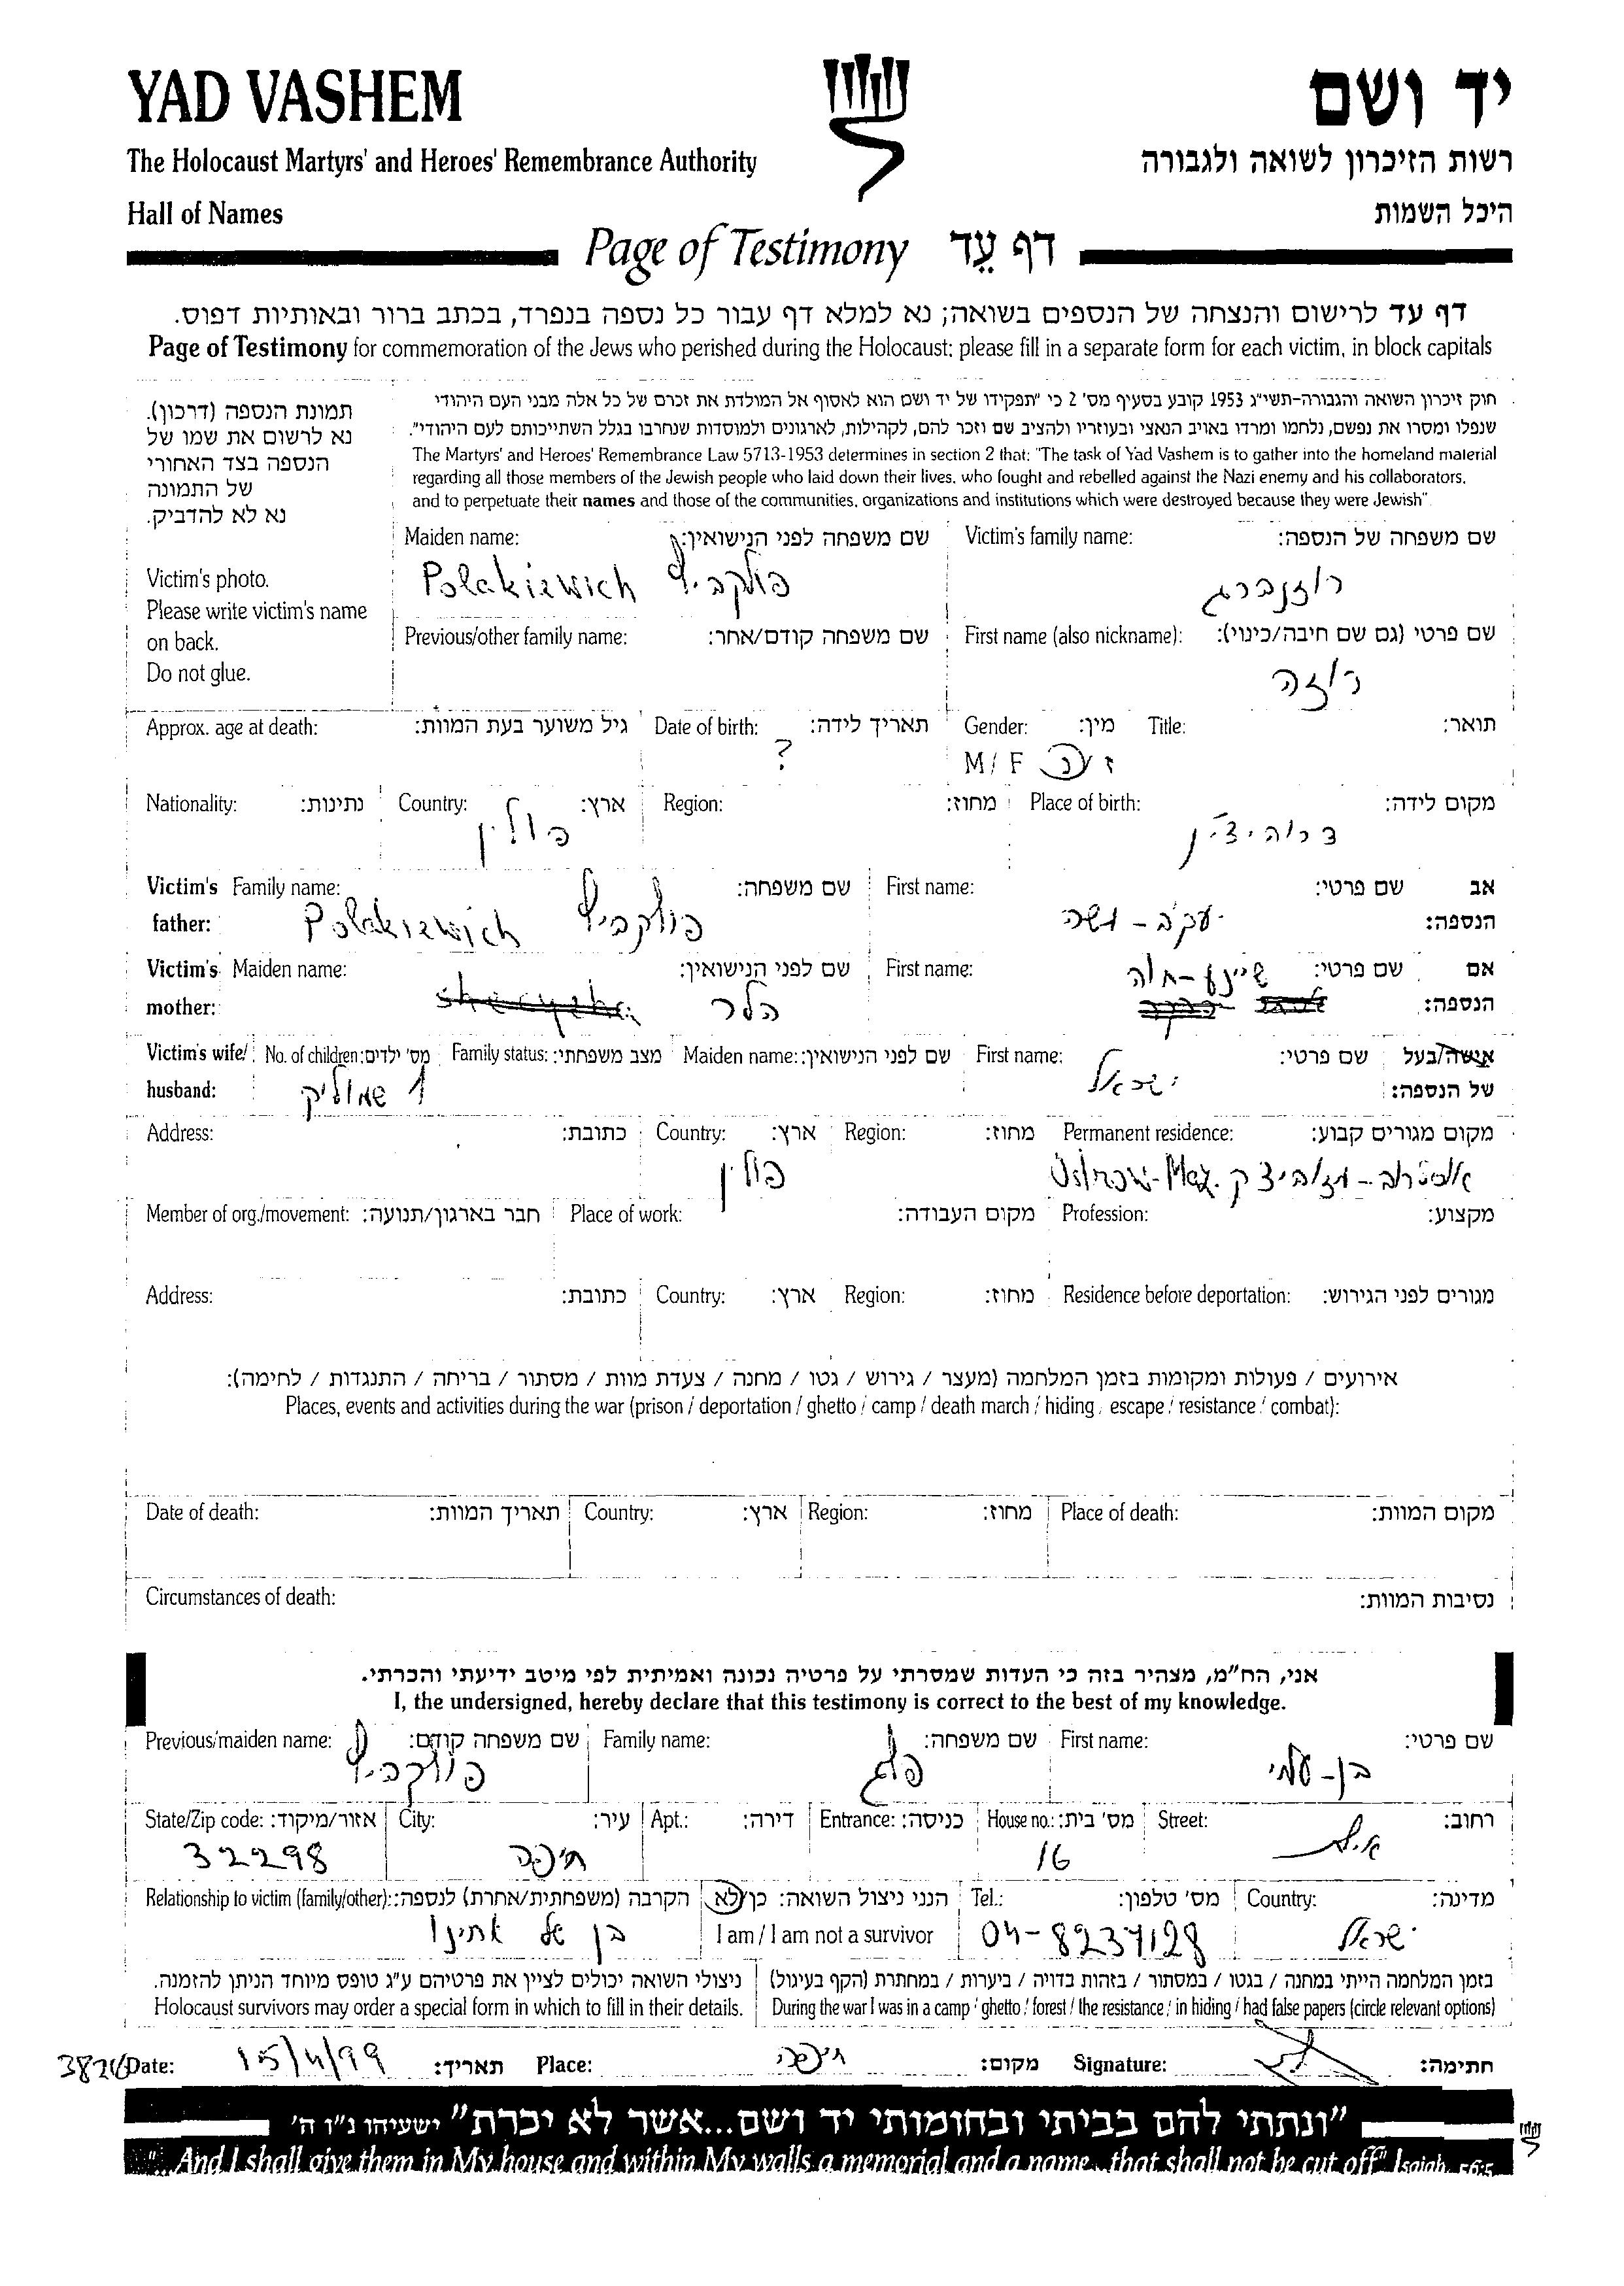 YAD VASHEM
יד ושם
The Holocaust Martyrs' and Heroes' Remembrance Authority
רשות הזיכרון לשואה ולגבורה
Hall of Names
היכל השמות
Page of Testimony דף עֵד
דף עד לרישום והנצחה של הנספים בשואה; נא למלא דף עבור כל נספה בנפרד, בכתב ברור ובאותיות דפוס.
Page of Testimony for commemoration of the Jews who perished during the Holocaust; please fill in a separate form for each victim, in block capitals
תמונת הנספה (דרכון).
נא לרשום את שמו של
הנספה בצד האחורי
של התמונה
נא לא להדביק.
Victim's photo.
Please write victim's name
on back.
Do not glue.
חוק זיכרון השואה והגבורה-תשי"ג 1953 קובע בסעיף מס' 2 כי "תפקידו של יד ושם הוא לאסוף אל המולדת את זכרם של כל אלה מבני העם היהודי
שנפלו ומסרו את נפשם, נלחמו ומרדו באויב הנאצי ובעוזריו ולהציב שם וזכר להם, לקהילות, לארגונים ולמוסדות שנחרבו בגלל השתייכותם לעם היהודי".
The Martyrs' and Heroes' Remembrance Law 5713-1953 determines in section 2 that: "The task of Yad Vashem is to gather into the homeland material
regarding all those members of the Jewish people who laid down their lives, who fought and rebelled against the Nazi enemy and his collaborators,
and to perpetuate their names and those of the communities, organizations and institutions which were destroyed because they were Jewish"
Victim's family name: שם משפחה של הנספה:
רוזנברג
Maiden name: שם משפחה לפני הנישואין:
Polakiewich פולקביץ
First name (also nickname): שם פרטי (גם שם חיבה/כינוי):
רוזה
Previous/other family name: שם משפחה קודם/אחר:
Title: תואר:
Gender: מין:
M / F ז / נ
Date of birth: תאריך לידה:
?
Approx. age at death: גיל משוער בעת המוות:
Place of birth: מקום לידה:
Region: מחוז:
Country: ארץ:
פולין
Nationality: נתינות:
Victim's father: אב הנספה:
First name: שם פרטי:
יעקב - משה
Family name: שם משפחה:
Polakiewich פולקביץ
Victim's mother: אם הנספה:
First name: שם פרטי:
שיינע-חוה
Maiden name: שם לפני הנישואין:
הלר
Victim's wife/ husband: אישה/בעל של הנספה:
First name: שם פרטי:
ישראל
Maiden name: שם לפני הנישואין:
Family status: מצב משפחתי:
No. of children: מס' ילדים:
1 שמוליק
Permanent residence: מקום מגורים קבוע:
אוסטרוב - מזוביצק Ostrow-Maz.
Region: מחוז:
Country: ארץ:
פולין
Address: כתובת:
Profession: מקצוע:
Place of work: מקום העבודה:
Member of org./movement: חבר בארגון/תנועה:
Residence before deportation: מגורים לפני הגירוש:
Region: מחוז:
Country: ארץ:
Address: כתובת:
אירועים / פעולות ומקומות בזמן המלחמה (מעצר / גירוש / גטו / מחנה / צעדת מוות / מסתור / בריחה / התנגדות / לחימה):
Places, events and activities during the war (prison / deportation / ghetto / camp / death march / hiding / escape / resistance / combat):
Place of death: מקום המוות:
Region: מחוז:
Country: ארץ:
Date of death: תאריך המוות:
Circumstances of death: נסיבות המוות:
אני, הח"מ, מצהיר בזה כי העדות שמסרתי על פרטיה נכונה ואמיתית לפי מיטב ידיעתי והכרתי.
I, the undersigned, hereby declare that this testimony is correct to the best of my knowledge.
First name: שם פרטי:
בן-עמי
Family name: שם משפחה:
פלג
Previous/maiden name: שם משפחה קודם:
פולקביץ
Street: רחוב:
House no.: מס' בית:
16
Entrance: כניסה:
Apt.: דירה:
City: עיר:
חיפה
State/Zip code: אזור/מיקוד:
32298
Country: מדינה:
ישראל
Tel.: מס' טלפון:
04-8237128
הנני ניצול השואה: כן/לא
I am / I am not a survivor
Relationship to victim (family/other): הקרבה (משפחתית/אחרת) לנספה:
בן של אחינו
בזמן המלחמה הייתי במחנה / בגטו / במסתור / בזהות בדויה / ביערות / במחתרת (הקף בעיגול)
During the war I was in a camp / ghetto / forest / the resistance / in hiding / had false papers (circle relevant options)
ניצולי השואה יכולים לציין את פרטיהם ע"ג טופס מיוחד הניתן להזמנה.
Holocaust survivors may order a special form in which to fill in their details.
Date: 15/4/99 תאריך: Place: חיפה מקום: Signature: חתימה:
"ונתתי להם בביתי ובחומותי יד ושם...אשר לא יכרת" ישעיהו נ"ו ה'
"...And I shall give them in My house and within My walls a memorial and a name...that shall not be cut off" Isaiah, 56:5